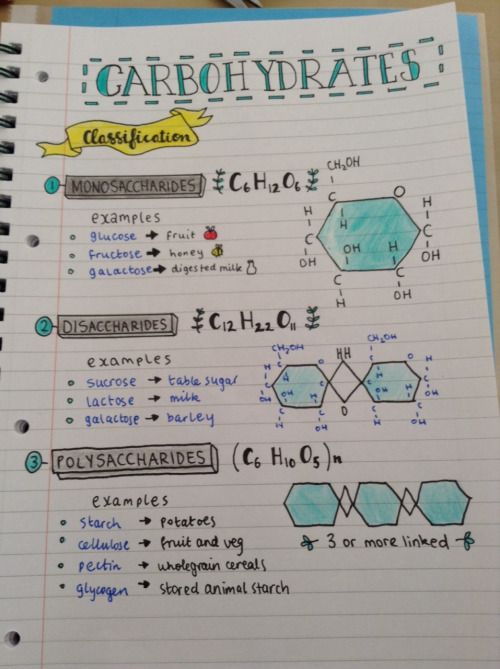 CARBOHYDRATES
Classification
1 MONOSACCHARIDES C6H12O6
examples
glucose → fruit
fructose → honey
galactose → digested milk
CH2OH
C
O
H
H
H
C
OH
H
C
OH
OH
C
C
H
OH
2 DISACCHARIDES C12H22O11
examples
sucrose → table sugar
lactose → milk
galactose → barley
CH2OH
HH
CH2OH
O
3 POLYSACCHARIDES (C6 H10 O5)n
examples
starch → potatoes
cellulose → fruit and veg
pectin → wholegrain cereals
glycogen → stored animal starch
3 or more linked